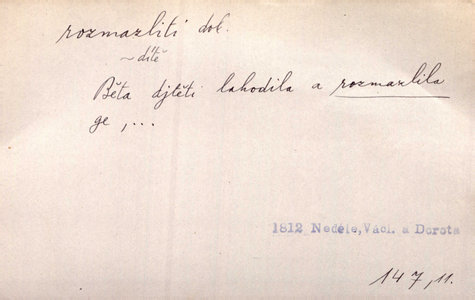 rozmazliti dok.
~ dítě
Běta djtěti lahodila a rozmazlila
ge ,...
1812 Neděle,Václ. a Dorota
147,11.